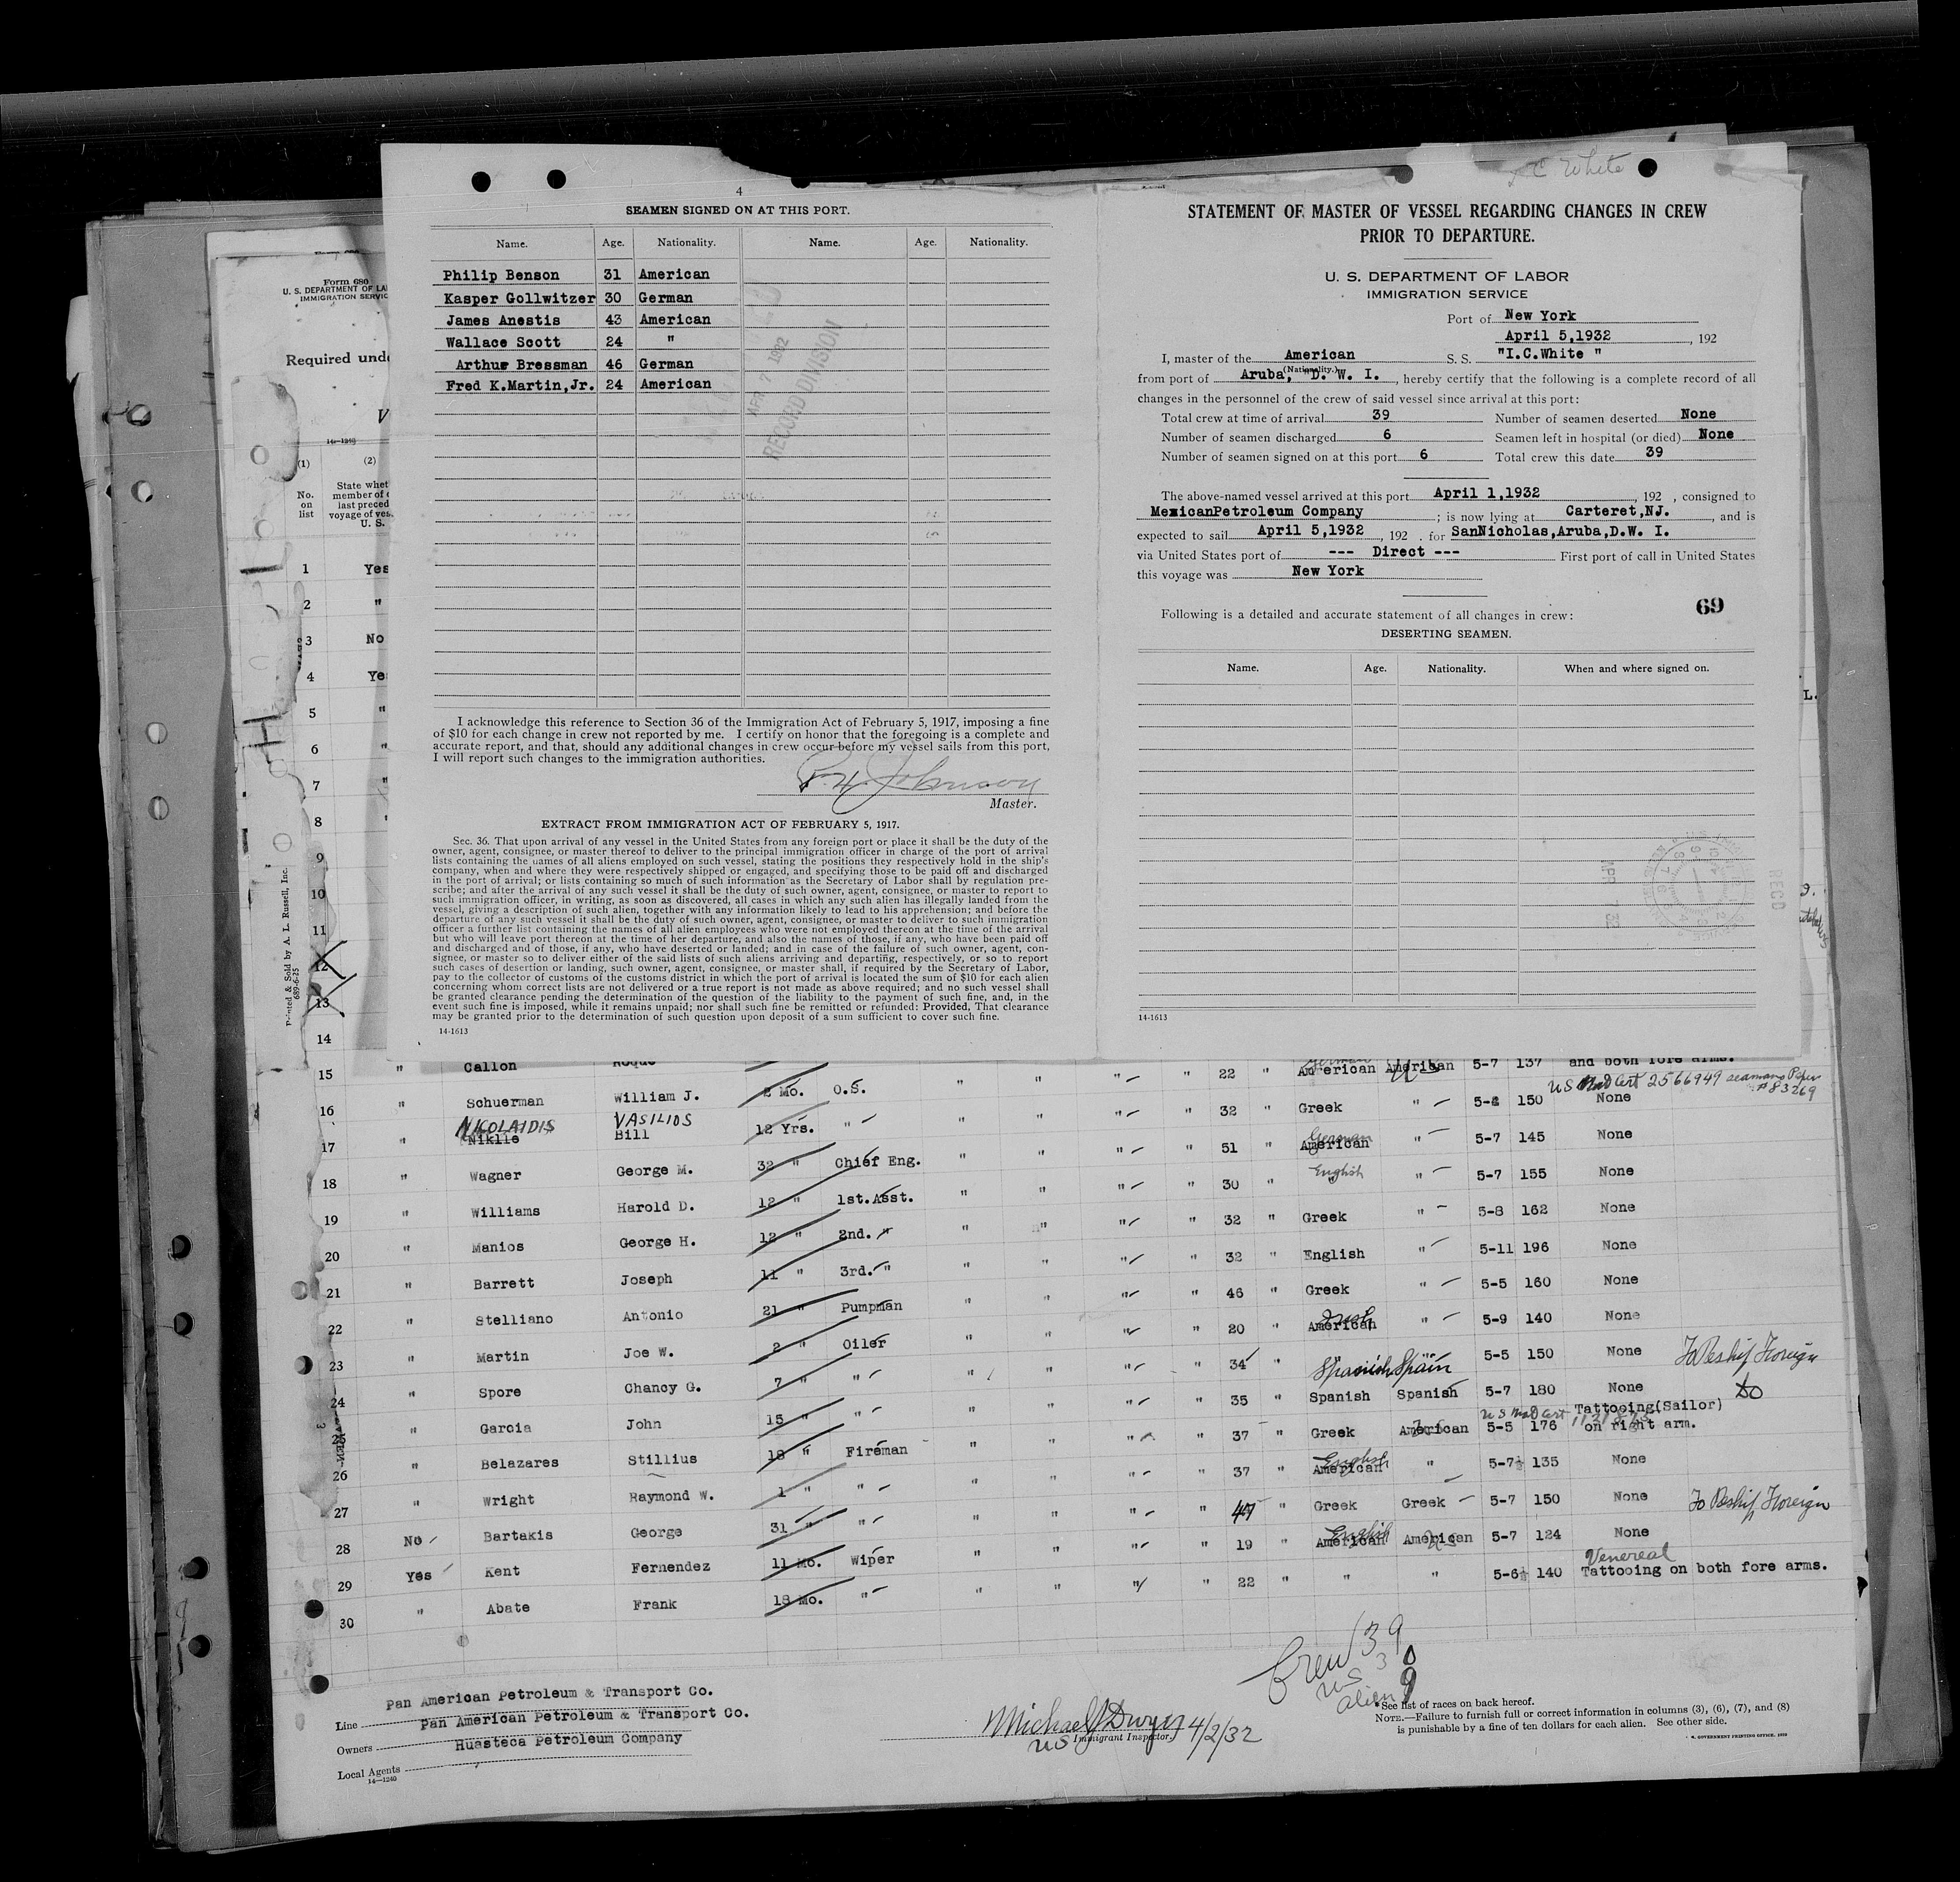 I C White
4
SEAMEN SIGNED ON AT THIS PORT.
Name. Age. Nationality. Name. Age. Nationality.
Philip Benson 31 American
Kasper Gollwitzer 30 German
James Anestis 43 American
Wallace Scott 24 "
Arthur Bressman 46 German
Fred K.Martin,Jr. 24 American
APR 7 1932
RECORD DIVISION
I acknowledge this reference to Section 36 of the Immigration Act of February 5, 1917, imposing a fine
of $10 for each change in crew not reported by me. I certify on honor that the foregoing is a complete and
accurate report, and that, should any additional changes in crew occur before my vessel sails from this port,
I will report such changes to the immigration authorities.
Johnson
Master.
EXTRACT FROM IMMIGRATION ACT OF FEBRUARY 5, 1917.
Sec. 36. That upon arrival of any vessel in the United States from any foreign port or place it shall be the duty of the
owner, agent, consignee, or master thereof to deliver to the principal immigration officer in charge of the port of arrival
lists containing the names of all aliens employed on such vessel, stating the positions they respectively hold in the ship's
company, when and where they were respectively shipped or engaged, and specifying those to be paid off and discharged
in the port of arrival; or lists containing so much of such information as the Secretary of Labor shall by regulation pre-
scribe; and after the arrival of any such vessel it shall be the duty of such owner, agent, consignee, or master to report to
such immigration officer, in writing, as soon as discovered, all cases in which any such alien has illegally landed from the
vessel, giving a description of such alien, together with any information likely to lead to his apprehension; and before the
departure of any such vessel it shall be the duty of such owner, agent, consignee, or master to deliver to such immigration
officer a further list containing the names of all alien employees who were not employed thereon at the time of the arrival
but who will leave port thereon at the time of her departure, and also the names of those, if any, who have been paid off
and discharged and of those, if any, who have deserted or landed; and in case of the failure of such owner, agent, con-
signee, or master so to deliver either of the said lists of such aliens arriving and departing, respectively, or so to report
such cases of desertion or landing, such owner, agent, consignee, or master shall, if required by the Secretary of Labor,
pay to the collector of customs of the customs district in which the port of arrival is located the sum of $10 for each alien
concerning whom correct lists are not delivered or a true report is not made as above required; and no such vessel shall
be granted clearance pending the determination of the question of the liability to the payment of such fine, and, in the
event such fine is imposed, while it remains unpaid; nor shall such fine be remitted or refunded: Provided, That clearance
may be granted prior to the determination of such question upon deposit of a sum sufficient to cover such fine.
14-1613
STATEMENT OF MASTER OF VESSEL REGARDING CHANGES IN CREW
PRIOR TO DEPARTURE.
U. S. DEPARTMENT OF LABOR
IMMIGRATION SERVICE
Port of New York
April 5,1932, 192
I, master of the American S. S. "I.C.White "
(Nationality.)
from port of Aruba, D. W. I., hereby certify that the following is a complete record of all
changes in the personnel of the crew of said vessel since arrival at this port:
Total crew at time of arrival 39 Number of seamen deserted None
Number of seamen discharged 6 Seamen left in hospital (or died) None
Number of seamen signed on at this port 6 Total crew this date 39
The above-named vessel arrived at this port April 1,1932, 192 , consigned to
MexicanPetroleum Company ; is now lying at Carteret,NJ., and is
expected to sail April 5,1932, 192 . for SanNicholas,Aruba,D.W. I.
via United States port of --- Direct --- First port of call in United States
this voyage was New York
69
Following is a detailed and accurate statement of all changes in crew:
DESERTING SEAMEN.
Name. Age. Nationality. When and where signed on.
RECD
APR 7 32
14-1613
Form 680
U. S. DEPARTMENT OF LA
IMMIGRATION SERVIC
Required und
V
14-1240
(1) (2)
No. on list
State whet
member of
last preced
voyage of ves.
U. S.
1 Yes
2 "
3 No
4 Ye
5 "
6 "
7 "
8
9
10
11
12
13
14
Printed & Sold by A. L. Russell, Inc.
689-6-25
15 " Callon Roque 22 " American American 5-7 137 and both fore arms.
US Nad Cert 2566949 seamans Paper
#83269
16 " Schuerman William J. 2 Mo. O.S. " " " " 32 " Greek " 5-4 150 None
NICOLAIDIS VASILIOS
17 " Niklle Bill 12 Yrs. " " " " " 51 " American German " 5-7 145 None
18 " Wagner George M. 32 " Chief Eng. " " " " 30 " English " 5-7 155 None
19 " Williams Harold D. 12 " 1st.Asst. " " " " 32 " Greek " 5-8 162 None
20 " Manios George H. 12 " 2nd. " " " " " 32 " English " 5-11 196 None
21 " Barrett Joseph 11 " 3rd. " " " " " 46 " Greek " 5-5 160 None
22 " Stelliano Antonio 21 " Pumpman " " " " 20 " American Irish " 5-9 140 None
23 " Martin Joe W. 2 " Oiler " " " " 34 " Spanish Spain 5-5 150 None To Reship Foreign
24 " Spore Chancy G. 7 " " " " " " 35 " Spanish Spanish 5-7 180 None do
US Nad Cert
Tattooing(Sailor)
25 " Garcia John 15 " " " " " " 37 " Greek American 5-5 176 on right arm.
26 " Belazares Stillius 18 " Fireman " " " " 37 " American English " 5-7½ 135 None
27 " Wright Raymond W. 1 " " " " " " 47 " Greek Greek 5-7 150 None To Reship Foreign
28 No Bartakis George 31 " " " " " " 19 " American English American US 5-7 124 None
Venereal
29 Yes Kent Fernendez 11 Mo. Wiper " " " " 22 " " " 5-6½ 140 Tattooing on both fore arms.
30 " Abate Frank 18 Mo. "
Crew 39
US 30
alien 9
Line Pan American Petroleum & Transport Co.
Owners Pan American Petroleum & Transport Co.
Local Agents Huasteca Petroleum Company
14-1240
Michael J Dwyer 4/2/32
US Immigrant Inspector.
*See list of races on back hereof.
NOTE.—Failure to furnish full or correct information in columns (3), (6), (7), and (8)
is punishable by a fine of ten dollars for each alien. See other side.
U. S. GOVERNMENT PRINTING OFFICE: 1930